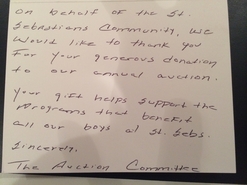 On behalf of the St.
Sebastians Community, we
would like to thank you
for your generous donation
to our annual auction.
Your gift helps support the
programs that benefit
all our boys at St. Sebs.
Sincerely,
The Auction Committee